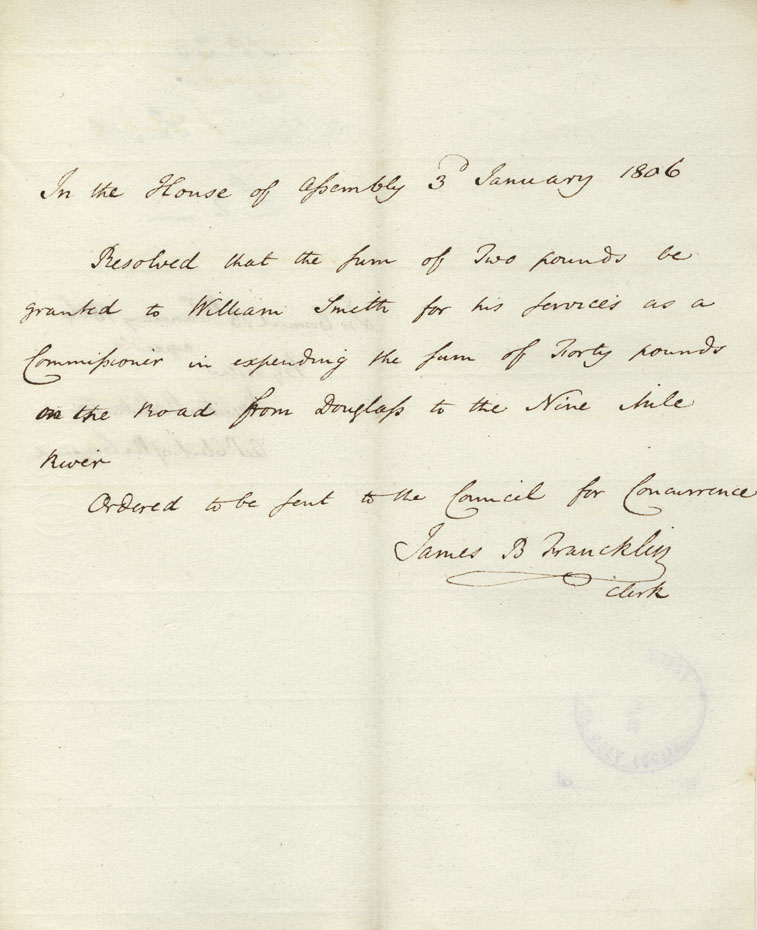 In the House of Assembly 3d January 1806
Resolved that the sum of Two pounds be
granted to William Smith for his services as a
Commissioner in expending the sum of Forty pounds
on the Road from Douglass to the Nine Mile
River
Ordered to be sent to the Council for Concurrence
James B Francklin
Clerk